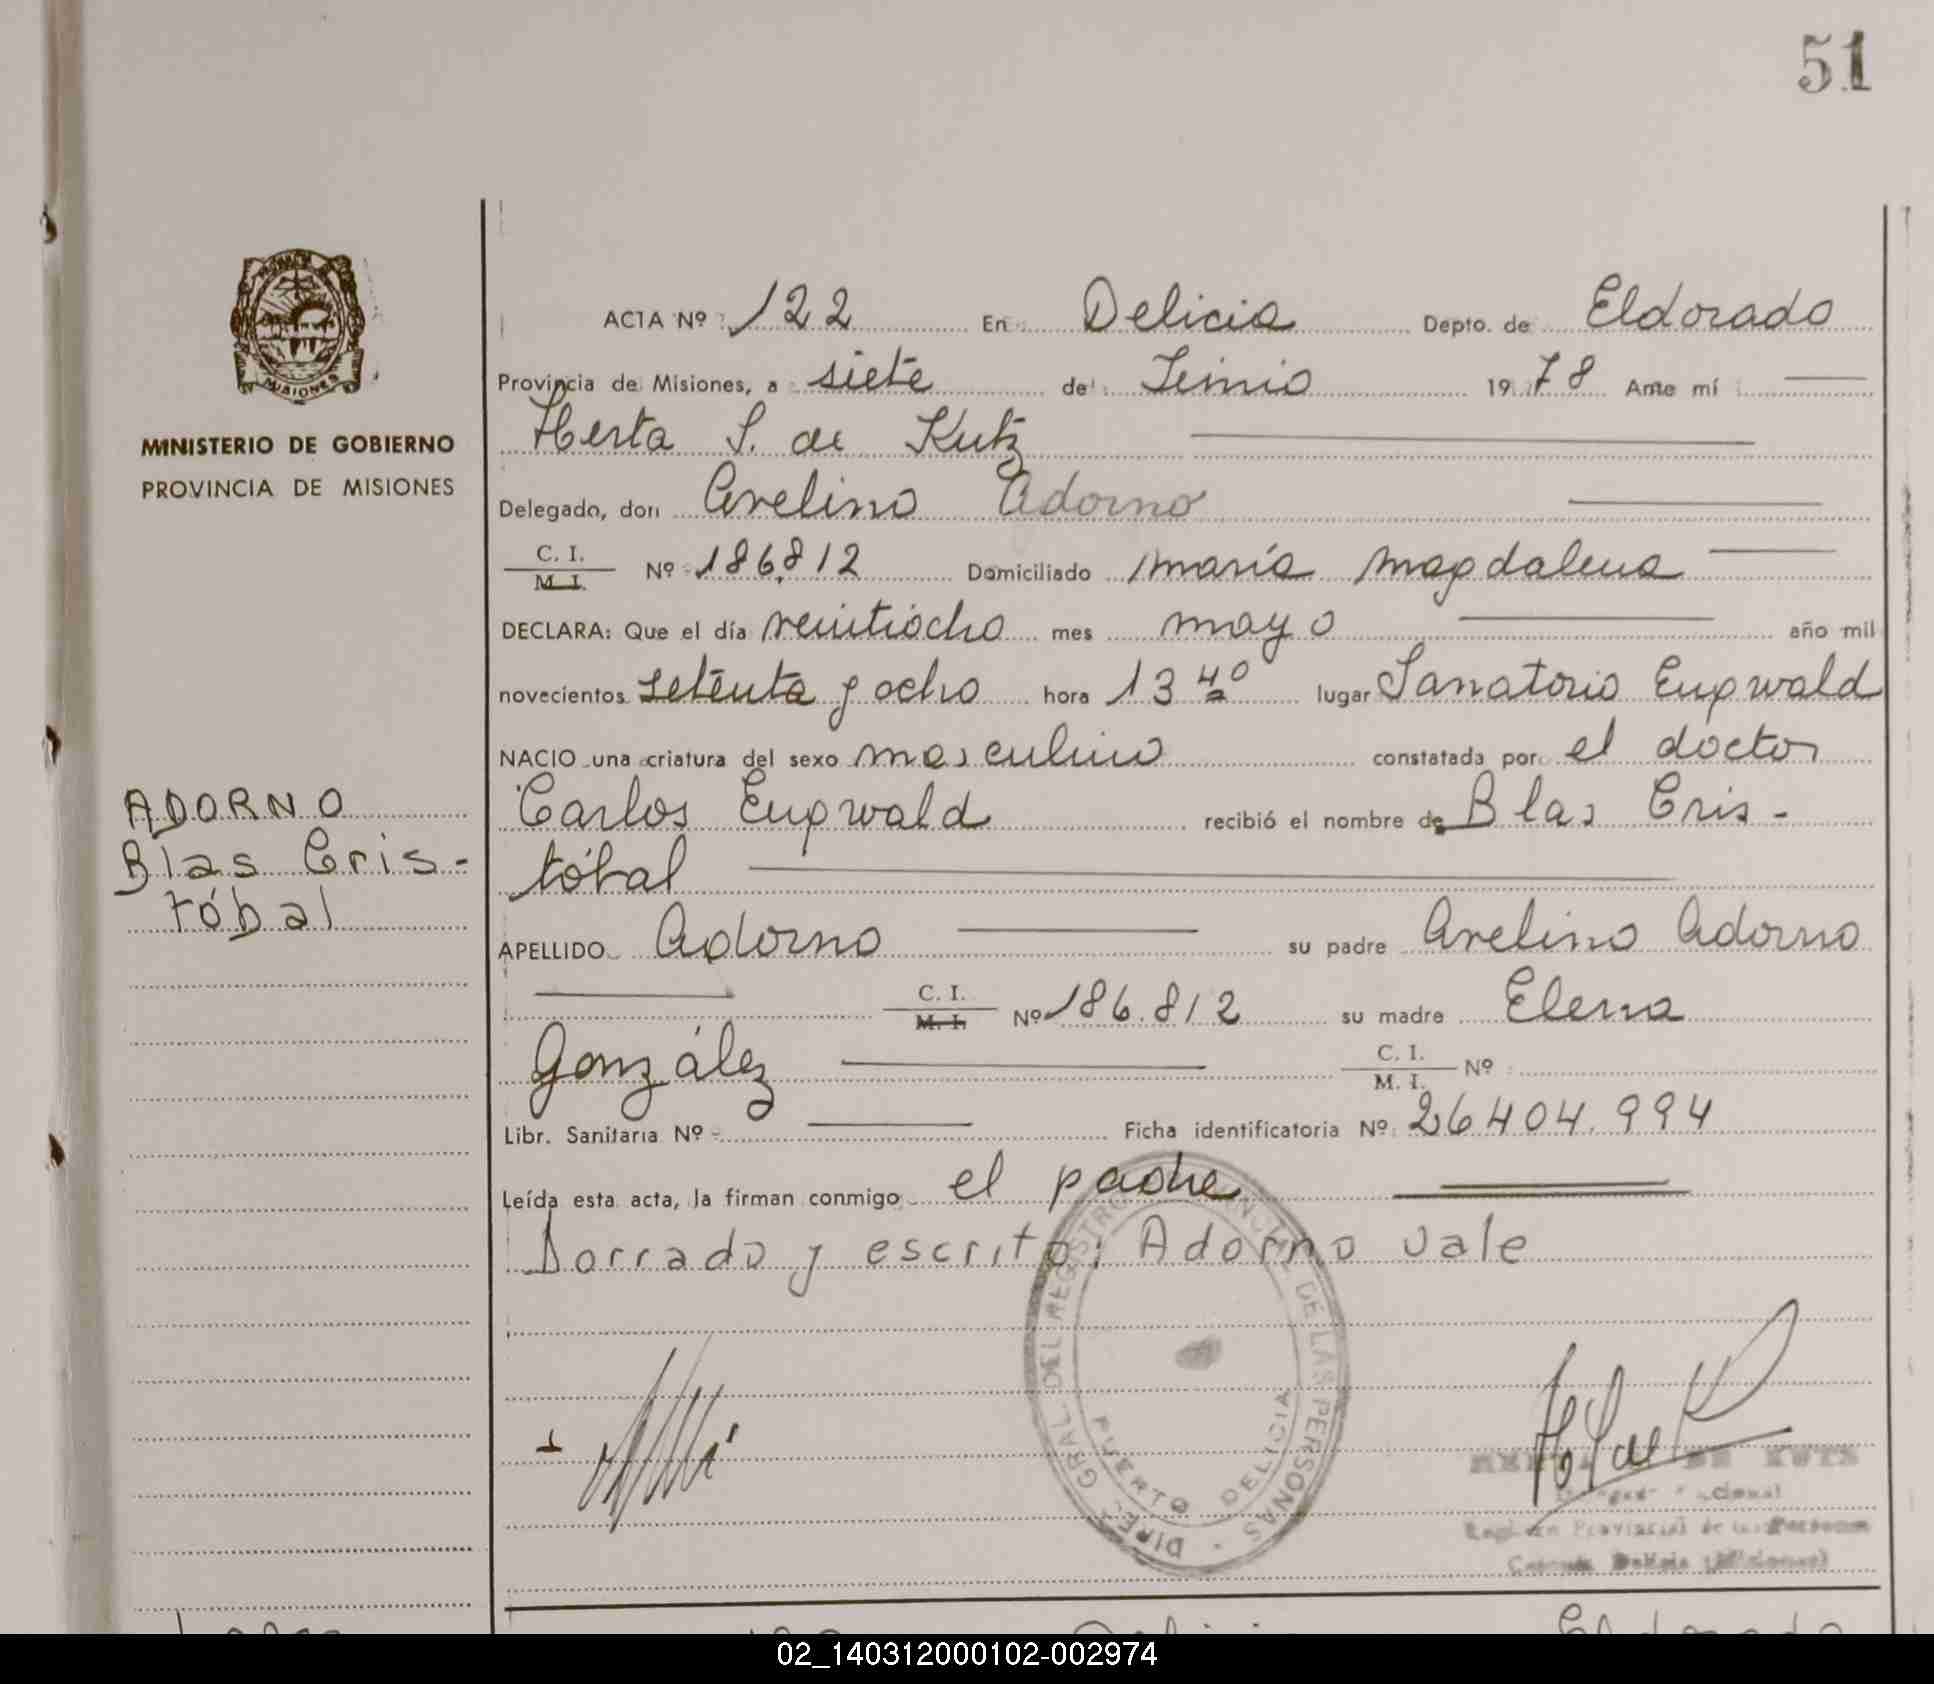 51
ACTA Nº 122 En Delicia Depto. de Eldorado
Provincia de Misiones, a siete de Junio 1978 Ante mí
Herta S. de Kutz
MINISTERIO DE GOBIERNO
PROVINCIA DE MISIONES
Delegado, don Avelino Adorno
C. I.
M. I.
Nº 186.812 Domiciliado María Magdalena
DECLARA: Que el día veintiocho mes mayo año mil
novecientos setenta y ocho hora 13 40 lugar Sanatorio Eupwald
NACIO una criatura del sexo masculino constatada por el doctor
Carlos Eupwald recibió el nombre de Blas Cris-
tóbal
ADORNO
Blas Cris-
tóbal
APELLIDO Adorno su padre Avelino Adorno
C. I.
M. I.
Nº 186.812 su madre Elena
González
C. I.
M. I.
Nº
Libr. Sanitaria Nº Ficha identificatoria Nº 26404.994
Leída esta acta, la firman conmigo el padre
Borrado y escrito: Adorno vale
DIREC. GRAL. DEL REGISTRO PROVINCIAL DE LAS PERSONAS
PUERTO DELICIA
DE KUTZ
Registro Provincial de las Personas
Delicia (Misiones)
02_140312000102-002974